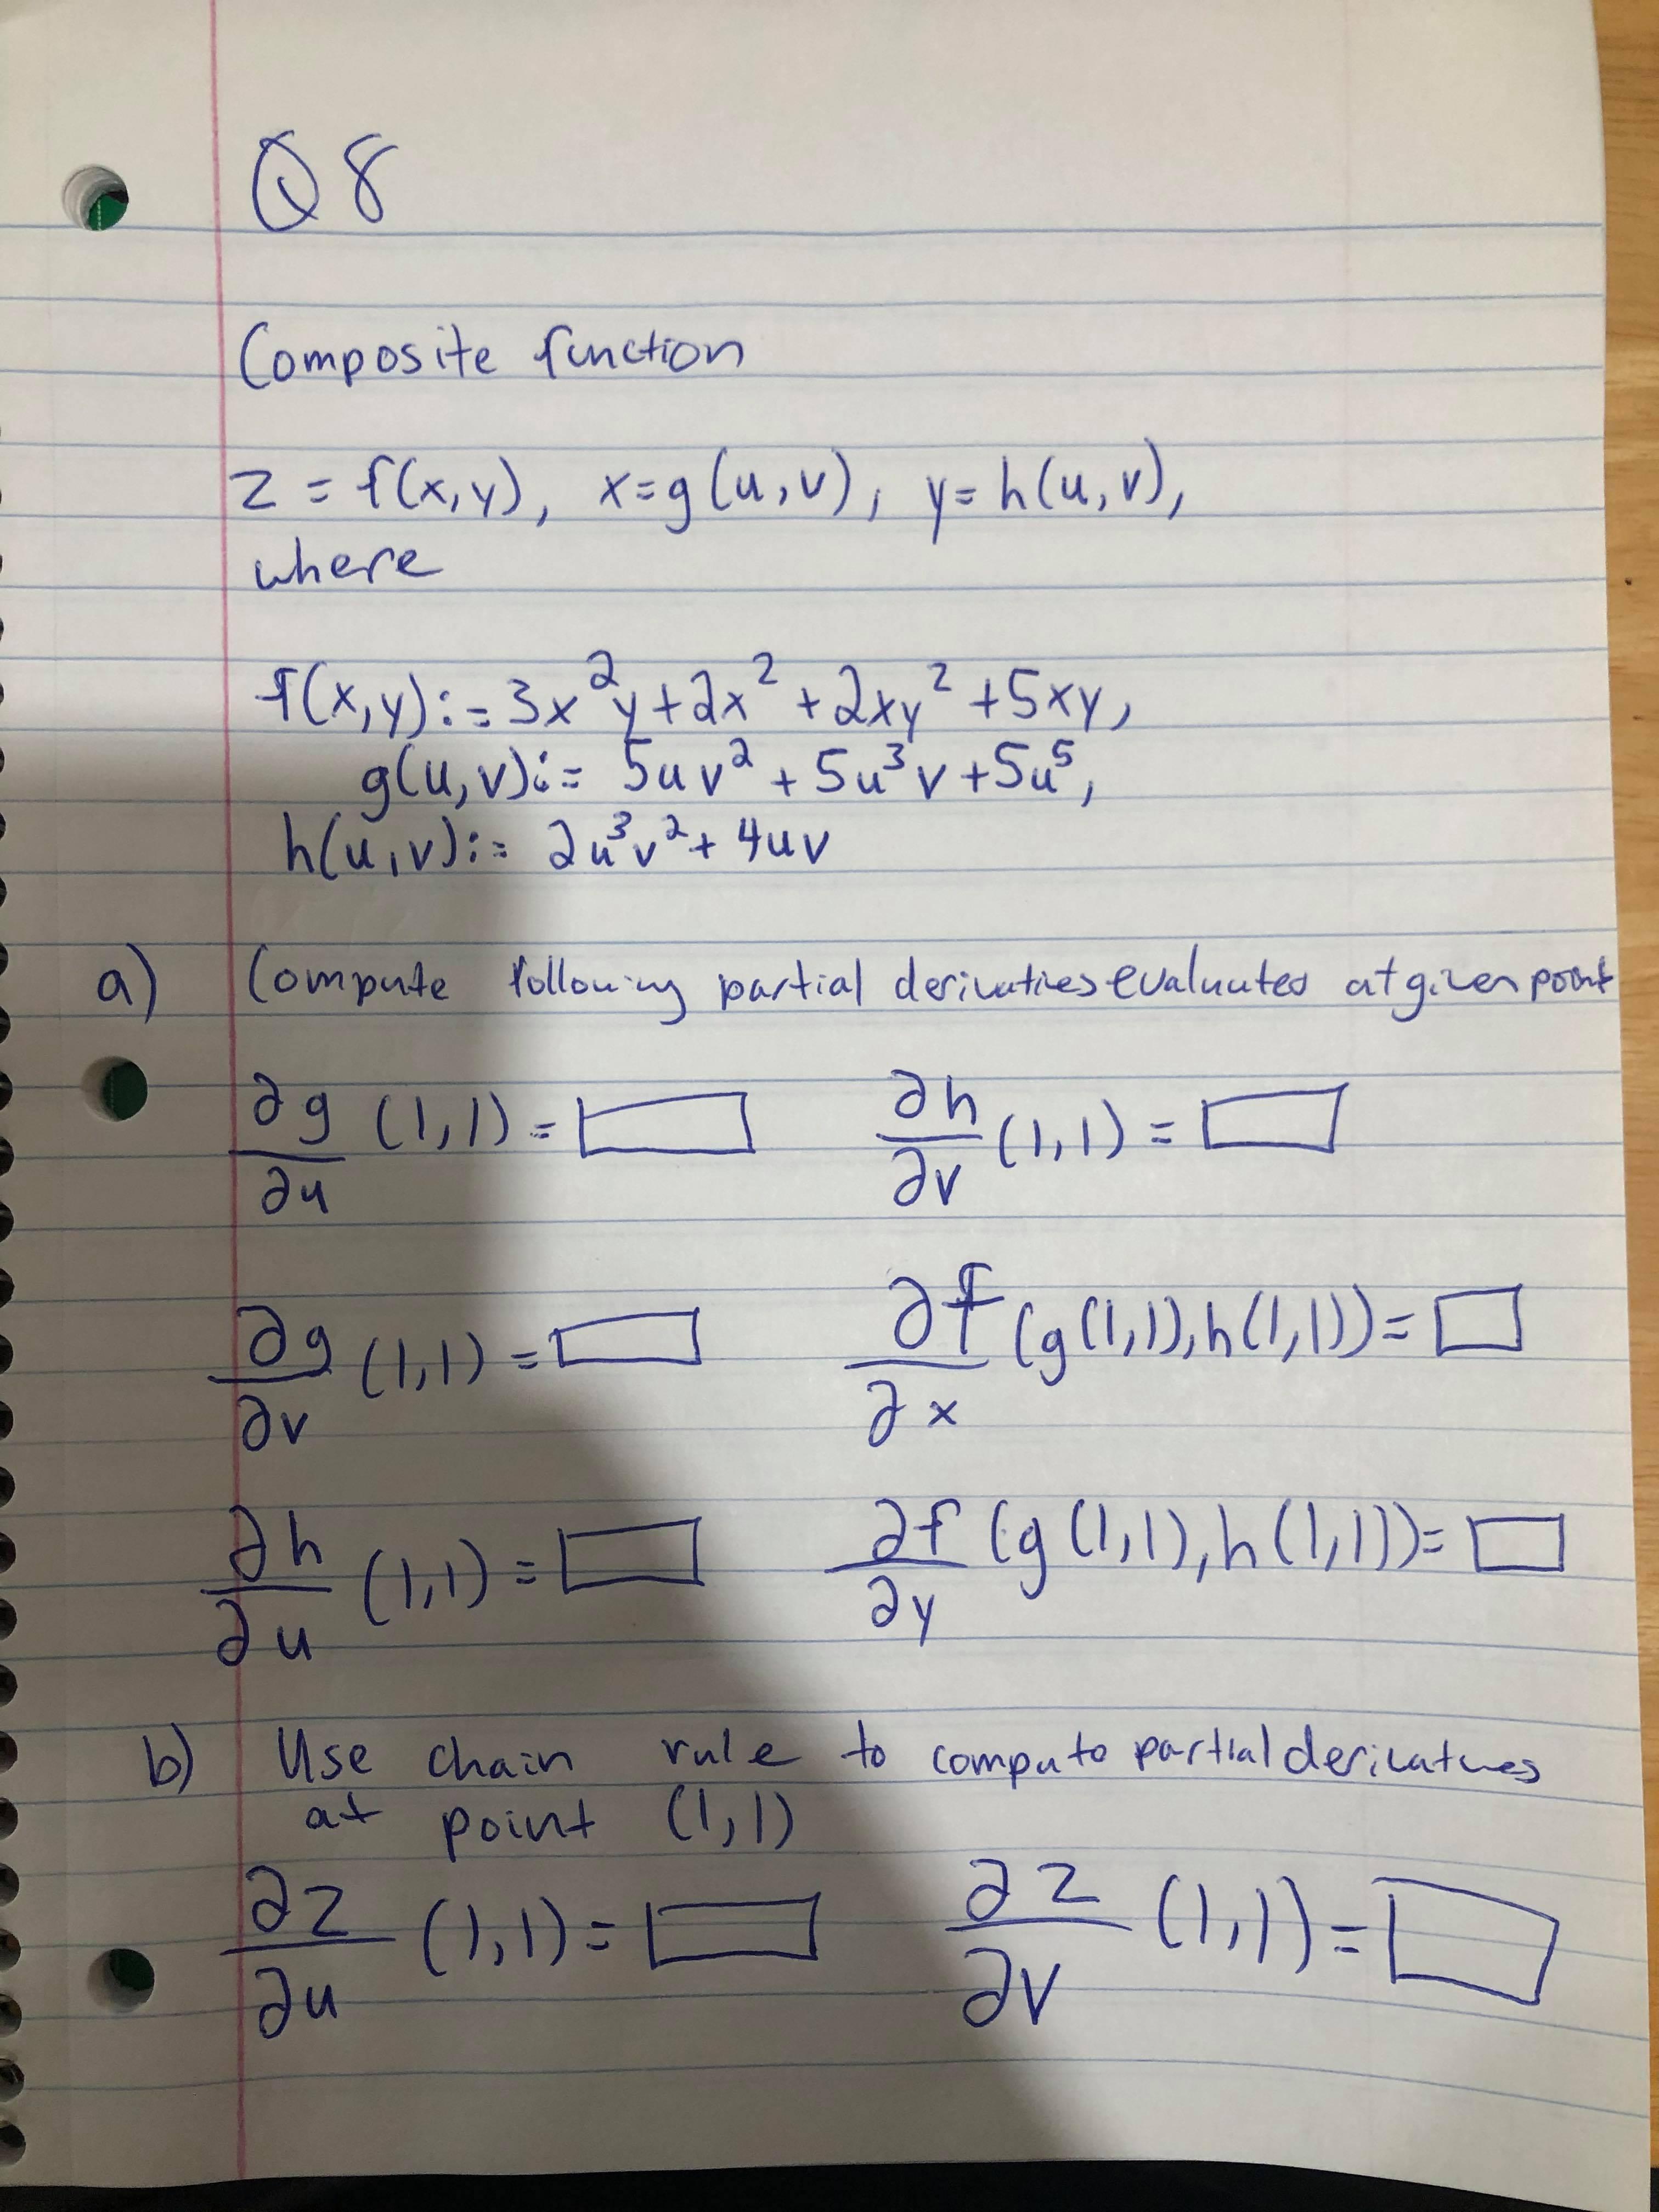 Q8
Composite function
z = f(x,y), x=g(u,v), y=h(u,v),
where
f(x,y):= 3x²y+2x²+2xy²+5xy,
g(u,v):= 5uv²+5u³v+5u⁵,
h(u,v):= 2u³v²+4uv
a) Compute following partial derivatives evaluates at given point
∂g/∂u (1,1)= ∂h/∂v (1,1)=
∂g/∂v (1,1)= ∂f/∂x (g(1,1),h(1,1))=
∂h/∂u (1,1)= ∂f/∂y (g(1,1),h(1,1))=
b) Use chain rule to compute partial derivatives
at point (1,1)
∂z/∂u (1,1)= ∂z/∂v (1,1)=